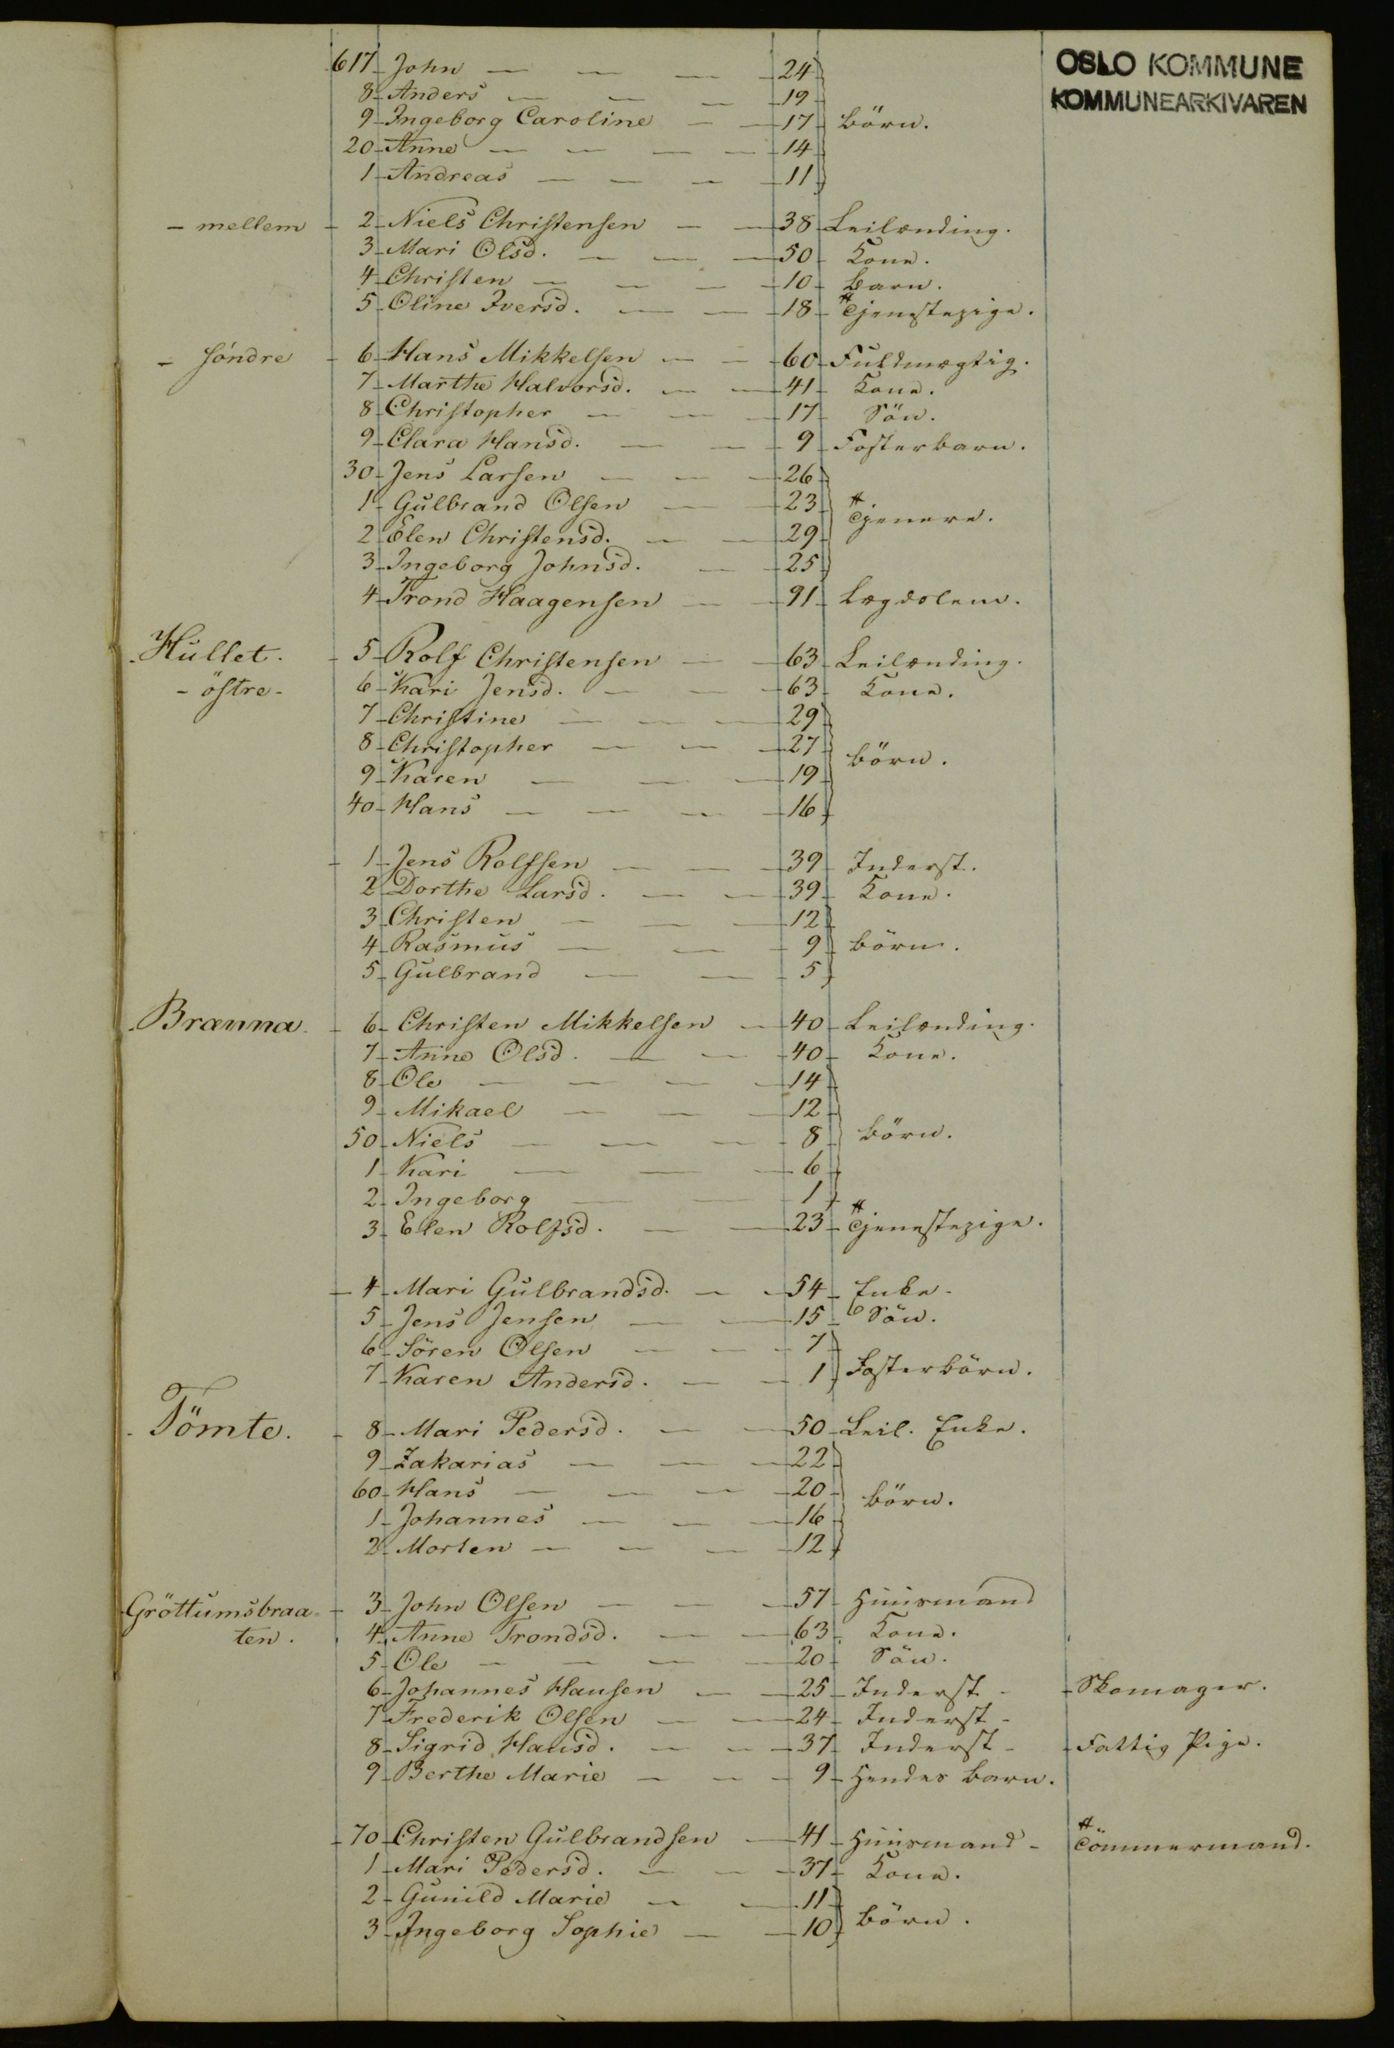 OSLO KOMMUNE
KOMMUNEARKIVAREN
617 John — — — 24
8 Anders — — — 19
9 Ingeborg Caroline — — 17 Börn.
20 Anne — — — — 14
1 Andreas — — — 11
- mellem - 2 Niels Christensen — — 38 Leilænding.
3 Mari Olsd. — — — 50 Kone.
4 Christen — — — — 10 Barn.
5 Oline Iversd. — — 18 Tjenestepige.
- söndre - 6 Hans Mikkelsen — — 60 Fuldmægtig.
7 Marthe Halvorsd. — — 41 Kone.
8 Christopher — — — 17 Sön.
9 Clara Hansd. — — 9 Fosterbarn.
30 Jens Larsen — — — 26
1 Gulbrand Olsen — — 23 Tjenere.
2 Elen Christensd. — — 29
3 Ingeborg Johnsd. — — 25
4 Trond Haagensen — — 91 Lægdslem.
Hullet. - 5 Rolf Christensen — — 63 Leilænding.
- östre - 6 Kari Jensd. — — — 63 Kone.
7 Christine — — — 29
8 Christopher — — — 27 Börn.
9 Karen — — — 19
40 Hans — — — — 16
- 1 Jens Rolfsen — — — 39 Inderst.
2 Dorthe Larsd. — — — 39 Kone.
3 Christen — — — 12
4 Rasmus — — — 9 Börn.
5 Gulbrand — — — 5
Brænna - 6 Christen Mikkelsen — 40 Leilænding.
7 Anne Olsd. — — 40 Kone.
8 Ole — — — — 14
9 Mikael — — — 12
50 Niels — — — 8 Börn.
1 Kari — — — 6
2 Ingeborg — — 1
3 Elen Rolfsd. — — 23 Tjenestepige.
- 4 Mari Gulbrandsd. — — 54 Enke.
5 Jens Jensen — — 15 Sön.
6 Sören Olsen — — — 7
7 Karen Andersd. — — 1 Fosterbörn.
Tömte. - 8 Mari Pedersd. — — 50 Leil. Enke.
9 Zakarias — — — 22
60 Hans — — — 20 Börn.
1 Johannes — — — 16
2 Morten — — — 12
Gröttumsbraa- - 3 John Olsen — — — 57 Huusmand
ten. 4 Anne Trondsd. — — 63 Kone.
5 Ole — — — — 20 Sön.
6 Johannes Hansen — — 25 Inderst - Skomager.
7 Frederik Olsen — — 24 Inderst -
8 Sigrid Hansd. — — — 37 Inderst - Fattig Pige.
9 Berthe Marie — — — 9 Hendes Barn.
- 70 Christen Gulbrandsen — 41 Huusmand - Tömmermand.
1 Mari Pedersd. — — — 37 Kone.
2 Gunild Marie — — 11
3 Ingeborg Sophie — — 10 Börn.